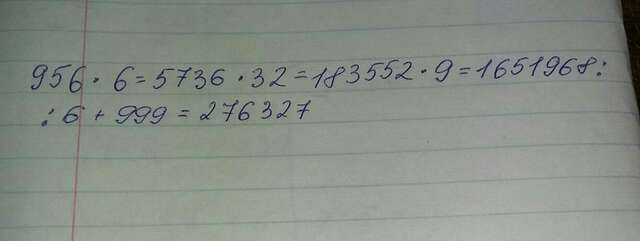 956 · 6 = 5736 · 32 = 183552 · 9 = 1651968 :
: 6 + 999 = 276327